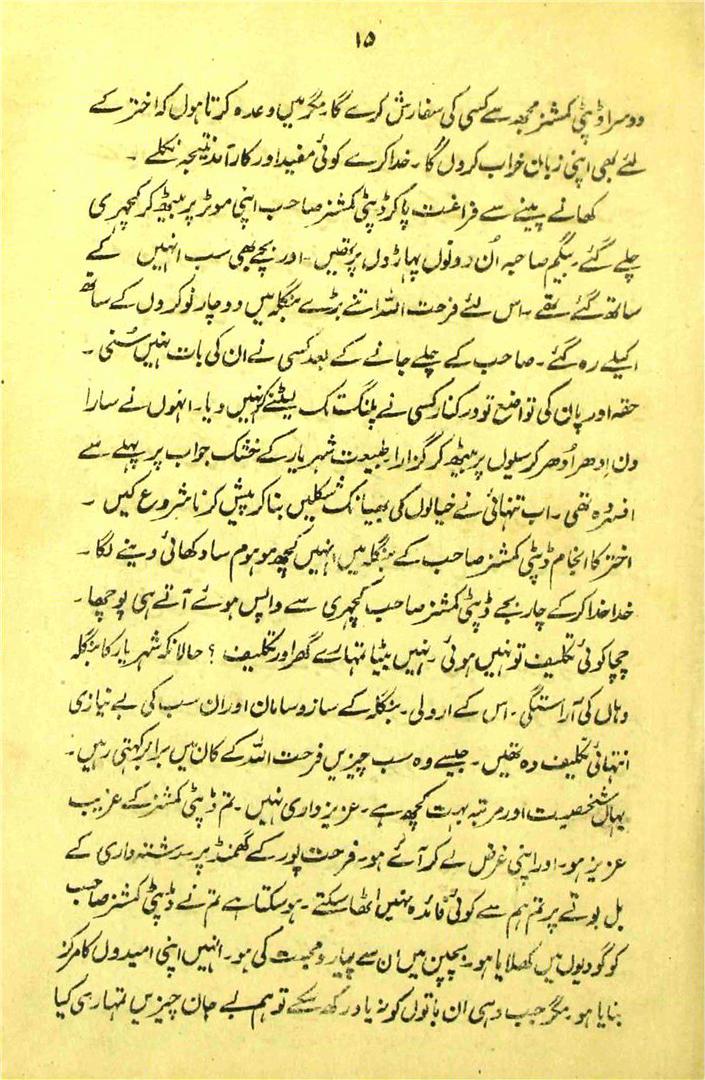 ۱۵
دوسرا ڈپٹی کمشنر مجھ سے کسی کی سفارش کرے گا۔ مگر میں وعدہ کرتا ہوں کہ اختر کے
لئے بھی اپنی زبان خراب کروں گا۔ خدا کرے کوئی مفید اور کارآمد نتیجہ نکلے۔
کھانے پینے سے فراغت پاکر ڈپٹی کمشنر صاحب اپنی موٹر پر بیٹھ کر کچہری
چلے گئے۔ بیگم صاحبہ اُن دونوں پہاڑوں پر تھیں۔ اور بچے بھی سب انہیں کے
ساتھ گئے تھے۔ اس لئے فرحت اللہ اتنے بڑے بنگلہ میں دو چار نوکروں کے ساتھ
اکیلے رہ گئے۔ صاحب کے چلے جانے کے بعد کسی نے ان کی بات نہیں سُنی۔
حقہ اور پان کی تواضع تو درکنار کسی نے پلنگ تک لیٹنے کو نہیں دیا۔ انہوں نے سارا
دن اِدھر اُدھر کر سیلوں پر بیٹھ کر گزارا۔ طبیعت شہریار کے خشک جواب پر پہلے سے
افسردہ تھی۔ اب تنہائی نے خیالوں کی بھیانک شکلیں بنا کر پیش کرنا شروع کیں۔
اختر کا انجام ڈپٹی کمشنر صاحب کے بنگلہ میں انہیں کچھ موہوم سا دکھائی دینے لگا۔
خدا خدا کرکے چار بجے ڈپٹی کمشنر صاحب کچہری سے واپس ہوئے آتے ہی پوچھا۔
چچا کوئی تکلیف تو نہیں ہوئی۔ نہیں بیٹا تمہارے گھر اور تکلیف؟ حالانکہ شہریار کا بنگلہ
وہاں کی آراستگی۔ اس کے اردلی۔ بنگلہ کے سازوسامان اور ان سب کی بے نیازی
انتہائی تکلیف دہ تھیں۔ جیسے وہ سب چیزیں فرحت اللہ کے کان میں برابر کہتی رہیں۔
یہاں شخصیت اور مرتبہ بہت کچھ ہے۔ عزیزداری نہیں۔ تم ڈپٹی کمشنر کے غریب
عزیز ہو۔ اور اپنی غرض لے کر آئے ہو۔ فرحت پور کے گھمنڈ پر۔ رشتہ داری کے
بل بوتے پر تم ہم سے کوئی فائدہ نہیں اٹھا سکتے۔ ہو سکتا ہے تم نے ڈپٹی کمشنر صاحب
کو گودیوں میں کھلایا ہو۔ بچپن میں ان سے پیار و محبت کی ہو۔ انہیں اپنی امیدوں کا مرکز
بنایا ہو۔ مگر جب وہی ان باتوں کو نہ یاد رکھ سکے تو ہم بے جان چیزیں تمہاری کیا